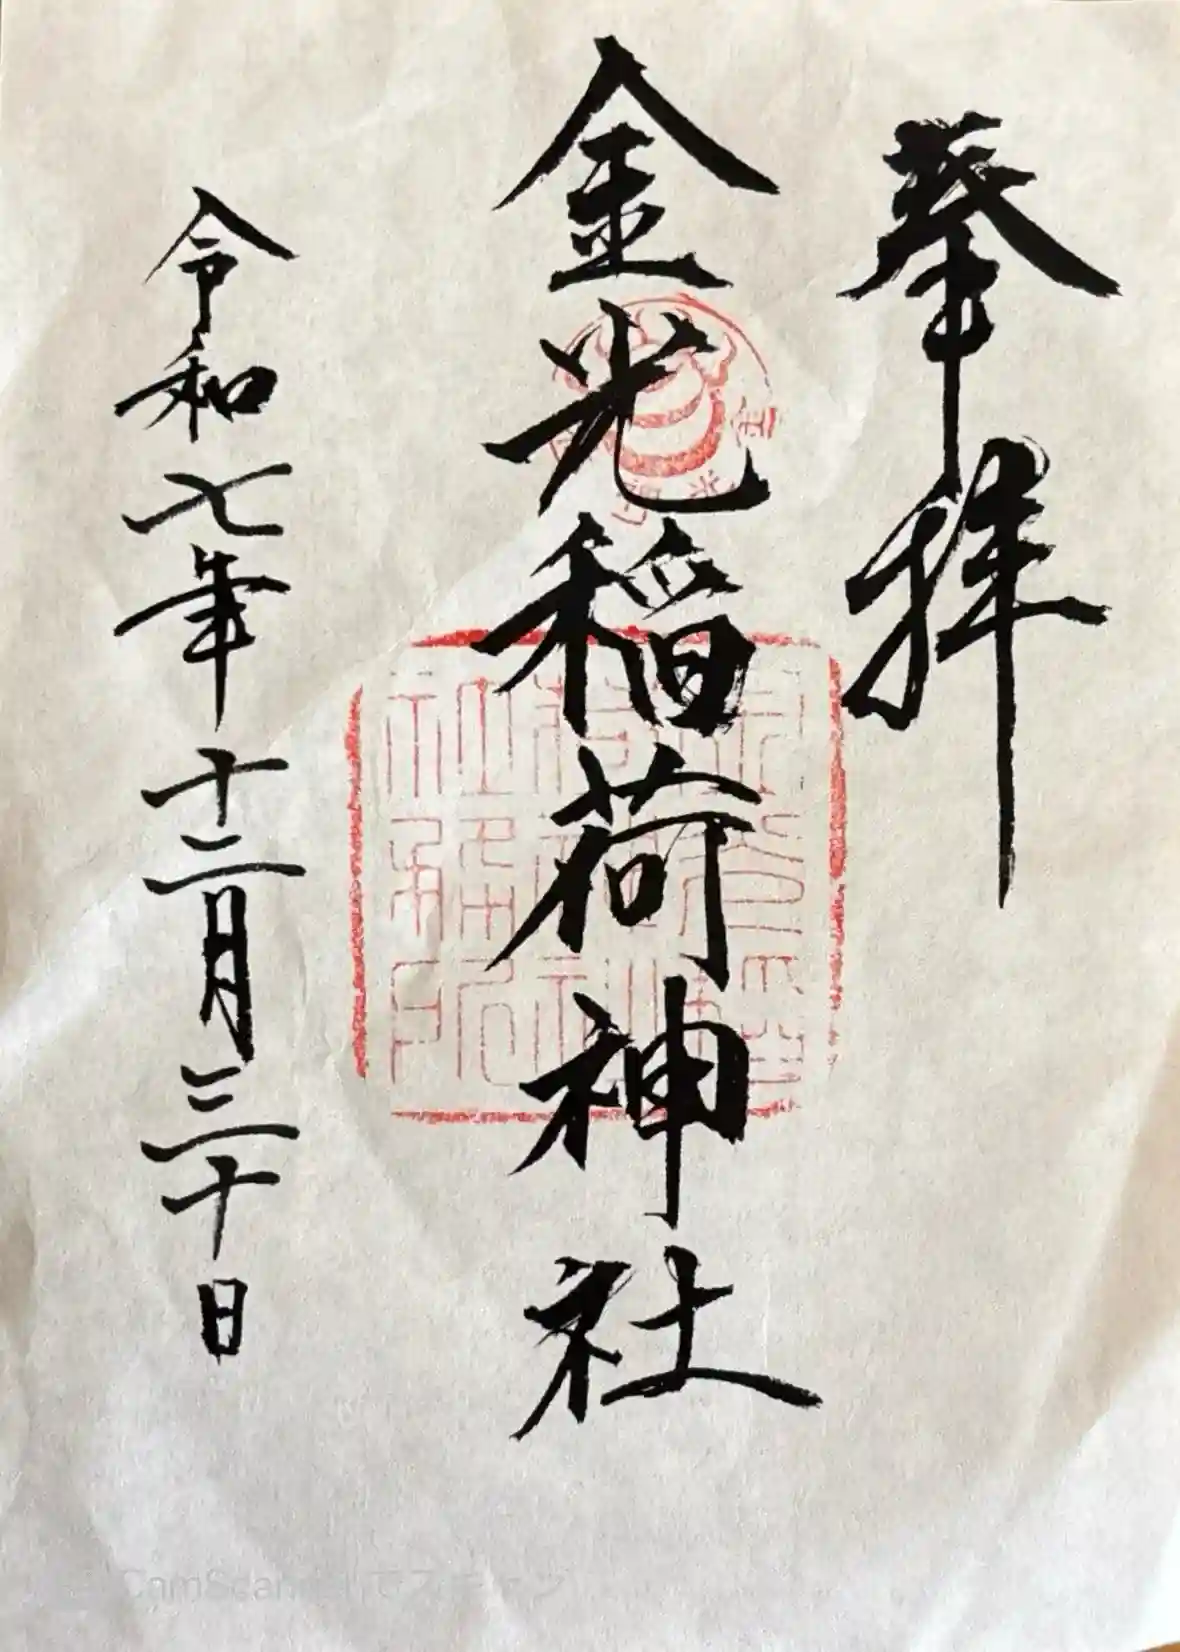 奉拝
金光稲荷神社
令和七年十二月三十日
CamScannerでスキャン